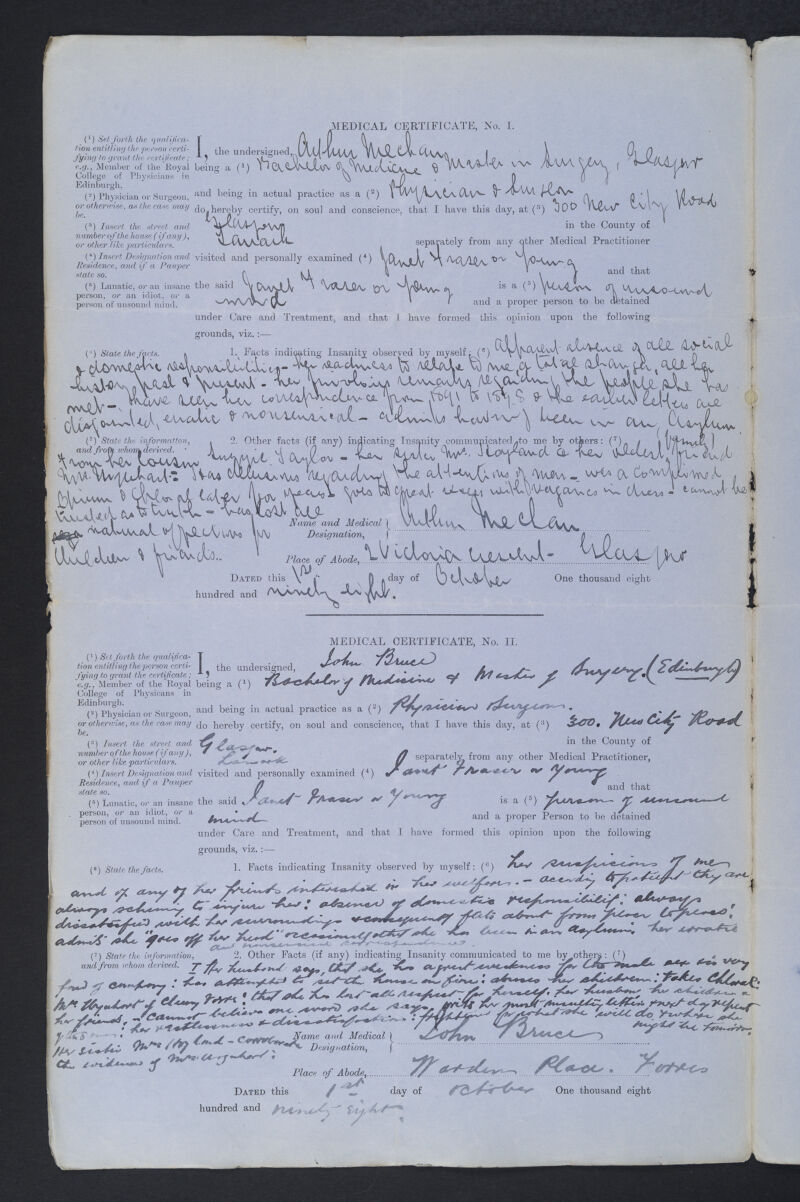 MEDICAL CERTIFICATE, No. I.
(1) Set forth the qualifica-
tion entitling the person certi-
fying to grant the certificate;
e.g., Member of the Royal
College of Physicians in
Edinburgh.
(2) Physician or Surgeon,
or otherwise, as the case may
be.
(3) Insert the street and
number of the house (if any),
or other like particulars.
(4) Insert Designation and
Residence, and if a Pauper
state so.
(5) Lunatic, or an insane
person, or an idiot, or a
person of unsound mind.
I, the undersigned, Arthur Mechan
being a (1) Bachelor of Medicine & Master in Surgery, Glasgow
and being in actual practice as a (2) Physician & Surgeon
do hereby certify, on soul and conscience, that I have this day, at (3) 300 New City Road
Glasgow in the County of
Lanark separately from any other Medical Practitioner
visited and personally examined (4) Janet Fraser or Young
and that
the said Janet Fraser or Young is a (5) person of unsound
mind and a proper person to be detained
under Care and Treatment, and that I have formed this opinion upon the following
grounds, viz. :—
(6) State the facts.
1. Facts indicating Insanity observed by myself: (6) Apparent absence of all social
& domestic responsibilities - her readiness to relate to me, a total stranger, all her
history past & present - her frivolous remarks regarding the people she has
met - I have seen her correspondence from 1891 to 1898 & the earlier letters are
disjointed, erratic & nonsensical - admits having been in an Asylum.
(7) State the information,
and from whom derived.
2. Other facts (if any) indicating Insanity communicated to me by others: (7)
From her cousin Suzzie Taylor - her sister Mrs. Hoyland & her oldest friend
Mrs. Urquhart - Has delusions regarding the attentions of men - was a confirmed
Opium & Chloral eater for years - goes to great excess with vagaries in dress - cannot be
trusted as to truth - has lost all
natural affections for
Children & friends.
Name and Medical Designation, Arthur Mechan
Place of Abode, 2 Victoria Crescent - Glasgow
DATED this 1st day of October One thousand eight
hundred and ninety eight.
MEDICAL CERTIFICATE, No. II.
(1) Set forth the qualifica-
tion entitling the person certi-
fying to grant the certificate;
e.g., Member of the Royal
College of Physicans in
Edinburgh.
(2) Physician or Surgeon,
or otherwise, as the case may
be.
(3) Insert the street and
number of the house (if any),
or other like particulars.
(4) Insert Designation and
Residence, and if a Pauper
state so.
(5) Lunatic, or an insane
person, or an idiot, or a
person of unsound mind.
I, the undersigned, John Bruce
being a (1) Bachelor of Medicine & Master of Surgery. (Edinburgh)
and being in actual practice as a (2) Physician Surgeon.
do hereby certify, on soul and conscience, that I have this day, at (3) 300. New City Road
Glasgow. in the County of
Lanark separately from any other Medical Practitioner,
visited and personally examined (4) Janet Fraser or Young
and that
the said Janet Fraser or Young is a (5) person of unsound
mind and a proper Person to be detained
under Care and Treatment, and that I have formed this opinion upon the following
grounds, viz. :—
(6) State the facts.
1. Facts indicating Insanity observed by myself: (6) her suspicions of me
and of any of her friends interested in her welfare. - according to patient they are
always scheming to injure her: absence of domestic responsibility: always
dissatisfied with her surroundings & consequently flits about from place to place:
admits she "goes off her head" occasionally & that she has been in an asylum: her erratic
and nonsensical correspondence.
(7) State the information,
and from whom derived.
2. Other Facts (if any) indicating Insanity communicated to me by others: (7)
Her husband says, that she has a great weakness for the male sex in very
fond of company: has attempted to set the house on fire: abuses her children: takes Chloral:
Mrs Urquhart of Cluny Forres: that she has lost all respect for herself, her husband her children &
her friends: - Cannot believe one word she says: writes her most insulting letters & next day
her restlessness & dissatisfaction: what she will do & where she
might be tomorrow.
Her sister Mrs Hoyland - corroborates
the evidence of Mrs Urquhart:
Name and Medical Designation, John Bruce
Place of Abode, Warden Place. Forres
DATED this 1st day of October One thousand eight
hundred and ninety eight.